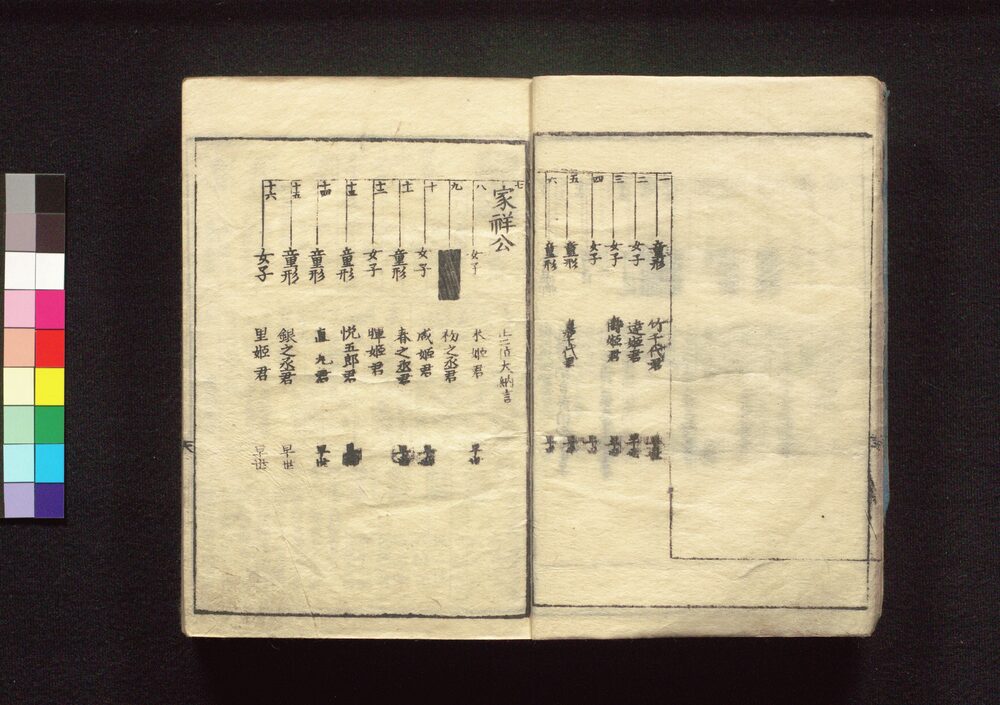 一 童形 竹千代君 早世
二 女子 達姫君 早世
三 女子 壽姫君 早世
四 女子 早世
五 童形 早世
六 童形 早世
七 家祥公 正二位大納言
八 女子 米姫君 早世
九 初之丞君
十 女子 咸姫君 早世
十一 童形 春之丞君 早世
十二 女子 暉姫君
十三 童形 悦五郎君
十四 童形 直丸君 早世
十五 童形 銀之丞君 早世
十六 女子 里姫君 早世